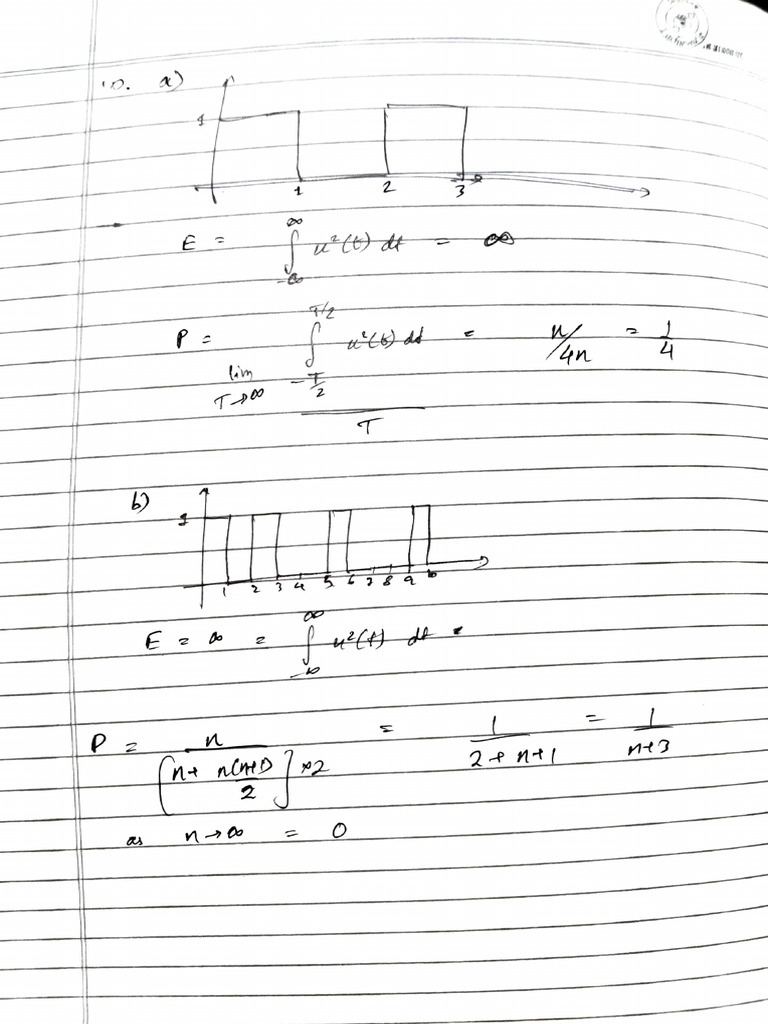 10. a)
1
1 2 3
E = ∫_{-∞}^{∞} x²(t) dt = ∞
P = lim_{T→∞} ∫_{-T/2}^{T/2} x²(t) dt / T = n/4n = 1/4
b)
1
1 2 3 4 5 6 7 8 9 10
E = ∞ = ∫_{-∞}^{∞} x²(t) dt
P = n / [n + n(n+1)/2] × 2 = 1 / 2+n+1 = 1 / n+3
as n→∞ = 0